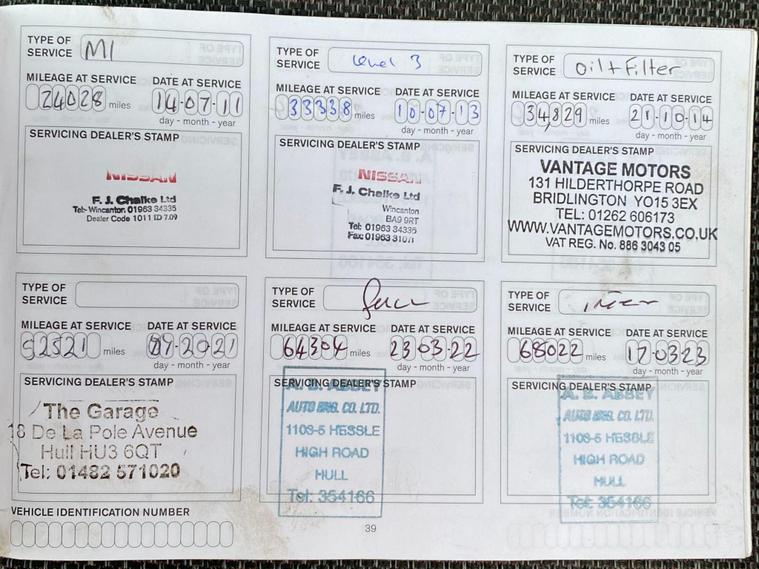 TYPE OF SERVICE M1
MILEAGE AT SERVICE DATE AT SERVICE
24028 miles 14-07-11
day - month - year
SERVICING DEALER'S STAMP
NISSAN
F. J. Chalke Ltd
Tel: Wincanton 01963 34335
Dealer Code 1011 ID 7.09
TYPE OF SERVICE Level 3
MILEAGE AT SERVICE DATE AT SERVICE
33338 miles 10-07-13
day - month - year
SERVICING DEALER'S STAMP
NISSAN
F. J. Chalke Ltd
Wincanton
BA9 9RT
Tel: 01963 34335
Fax: 01963 31071
TYPE OF SERVICE Oil + Filter
MILEAGE AT SERVICE DATE AT SERVICE
34,829 miles 21-10-14
day - month - year
SERVICING DEALER'S STAMP
VANTAGE MOTORS
131 HILDERTHORPE ROAD
BRIDLINGTON YO15 3EX
TEL: 01262 606173
WWW.VANTAGEMOTORS.CO.UK
VAT REG. No. 886 3043 05
TYPE OF SERVICE
MILEAGE AT SERVICE DATE AT SERVICE
52521 miles 07-2021
day - month - year
SERVICING DEALER'S STAMP
The Garage
18 De La Pole Avenue
Hull HU3 6QT
Tel: 01482 571020
TYPE OF SERVICE
MILEAGE AT SERVICE DATE AT SERVICE
64304 miles 23-03-22
day - month - year
SERVICING DEALER'S STAMP
A. B. ABBEY
AUTO ENG. CO. LTD.
1103-5 HESSLE
HIGH ROAD
HULL
Tel: 354166
TYPE OF SERVICE
MILEAGE AT SERVICE DATE AT SERVICE
68022 miles 17-03-23
day - month - year
SERVICING DEALER'S STAMP
A. B. ABBEY
AUTO ENG. CO. LTD.
1103-5 HESSLE
HIGH ROAD
HULL
Tel: 354166
VEHICLE IDENTIFICATION NUMBER
39